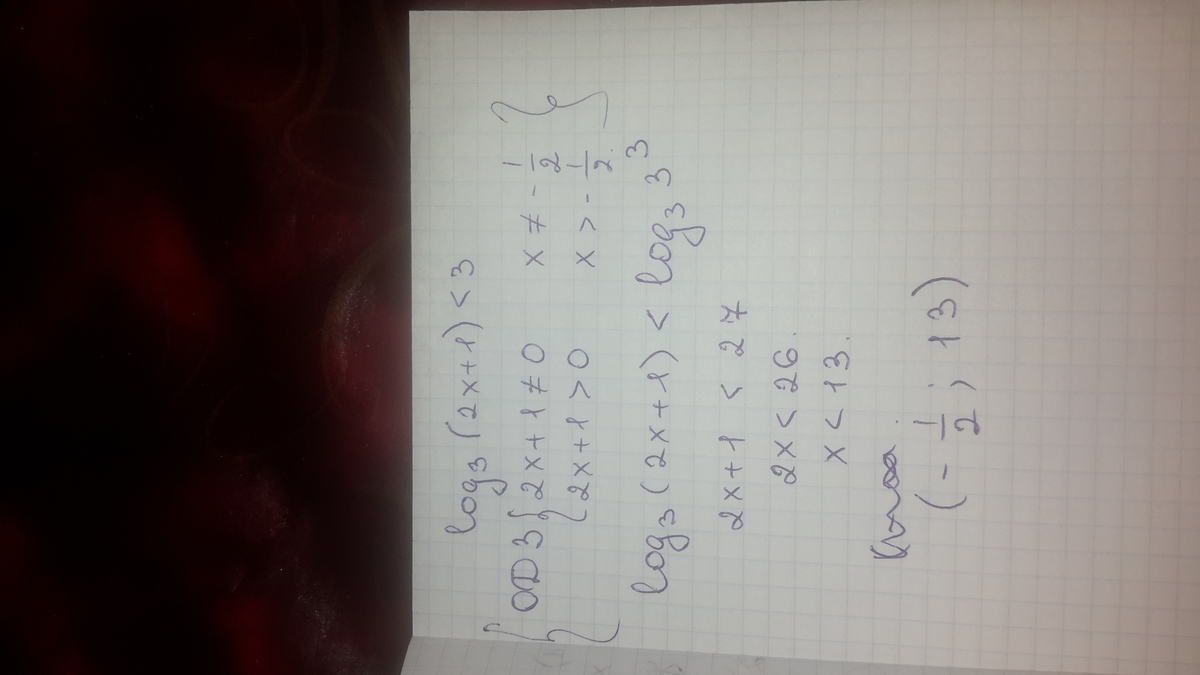 log₃(2x+1) < 3
{ ОДЗ { 2x+1 ≠ 0 x ≠ -1/2 }
{ 2x+1 > 0 x > -1/2. }
log₃(2x+1) < log₃ 3³
2x+1 < 27
2x < 26.
x < 13.
(-1/2; 13)